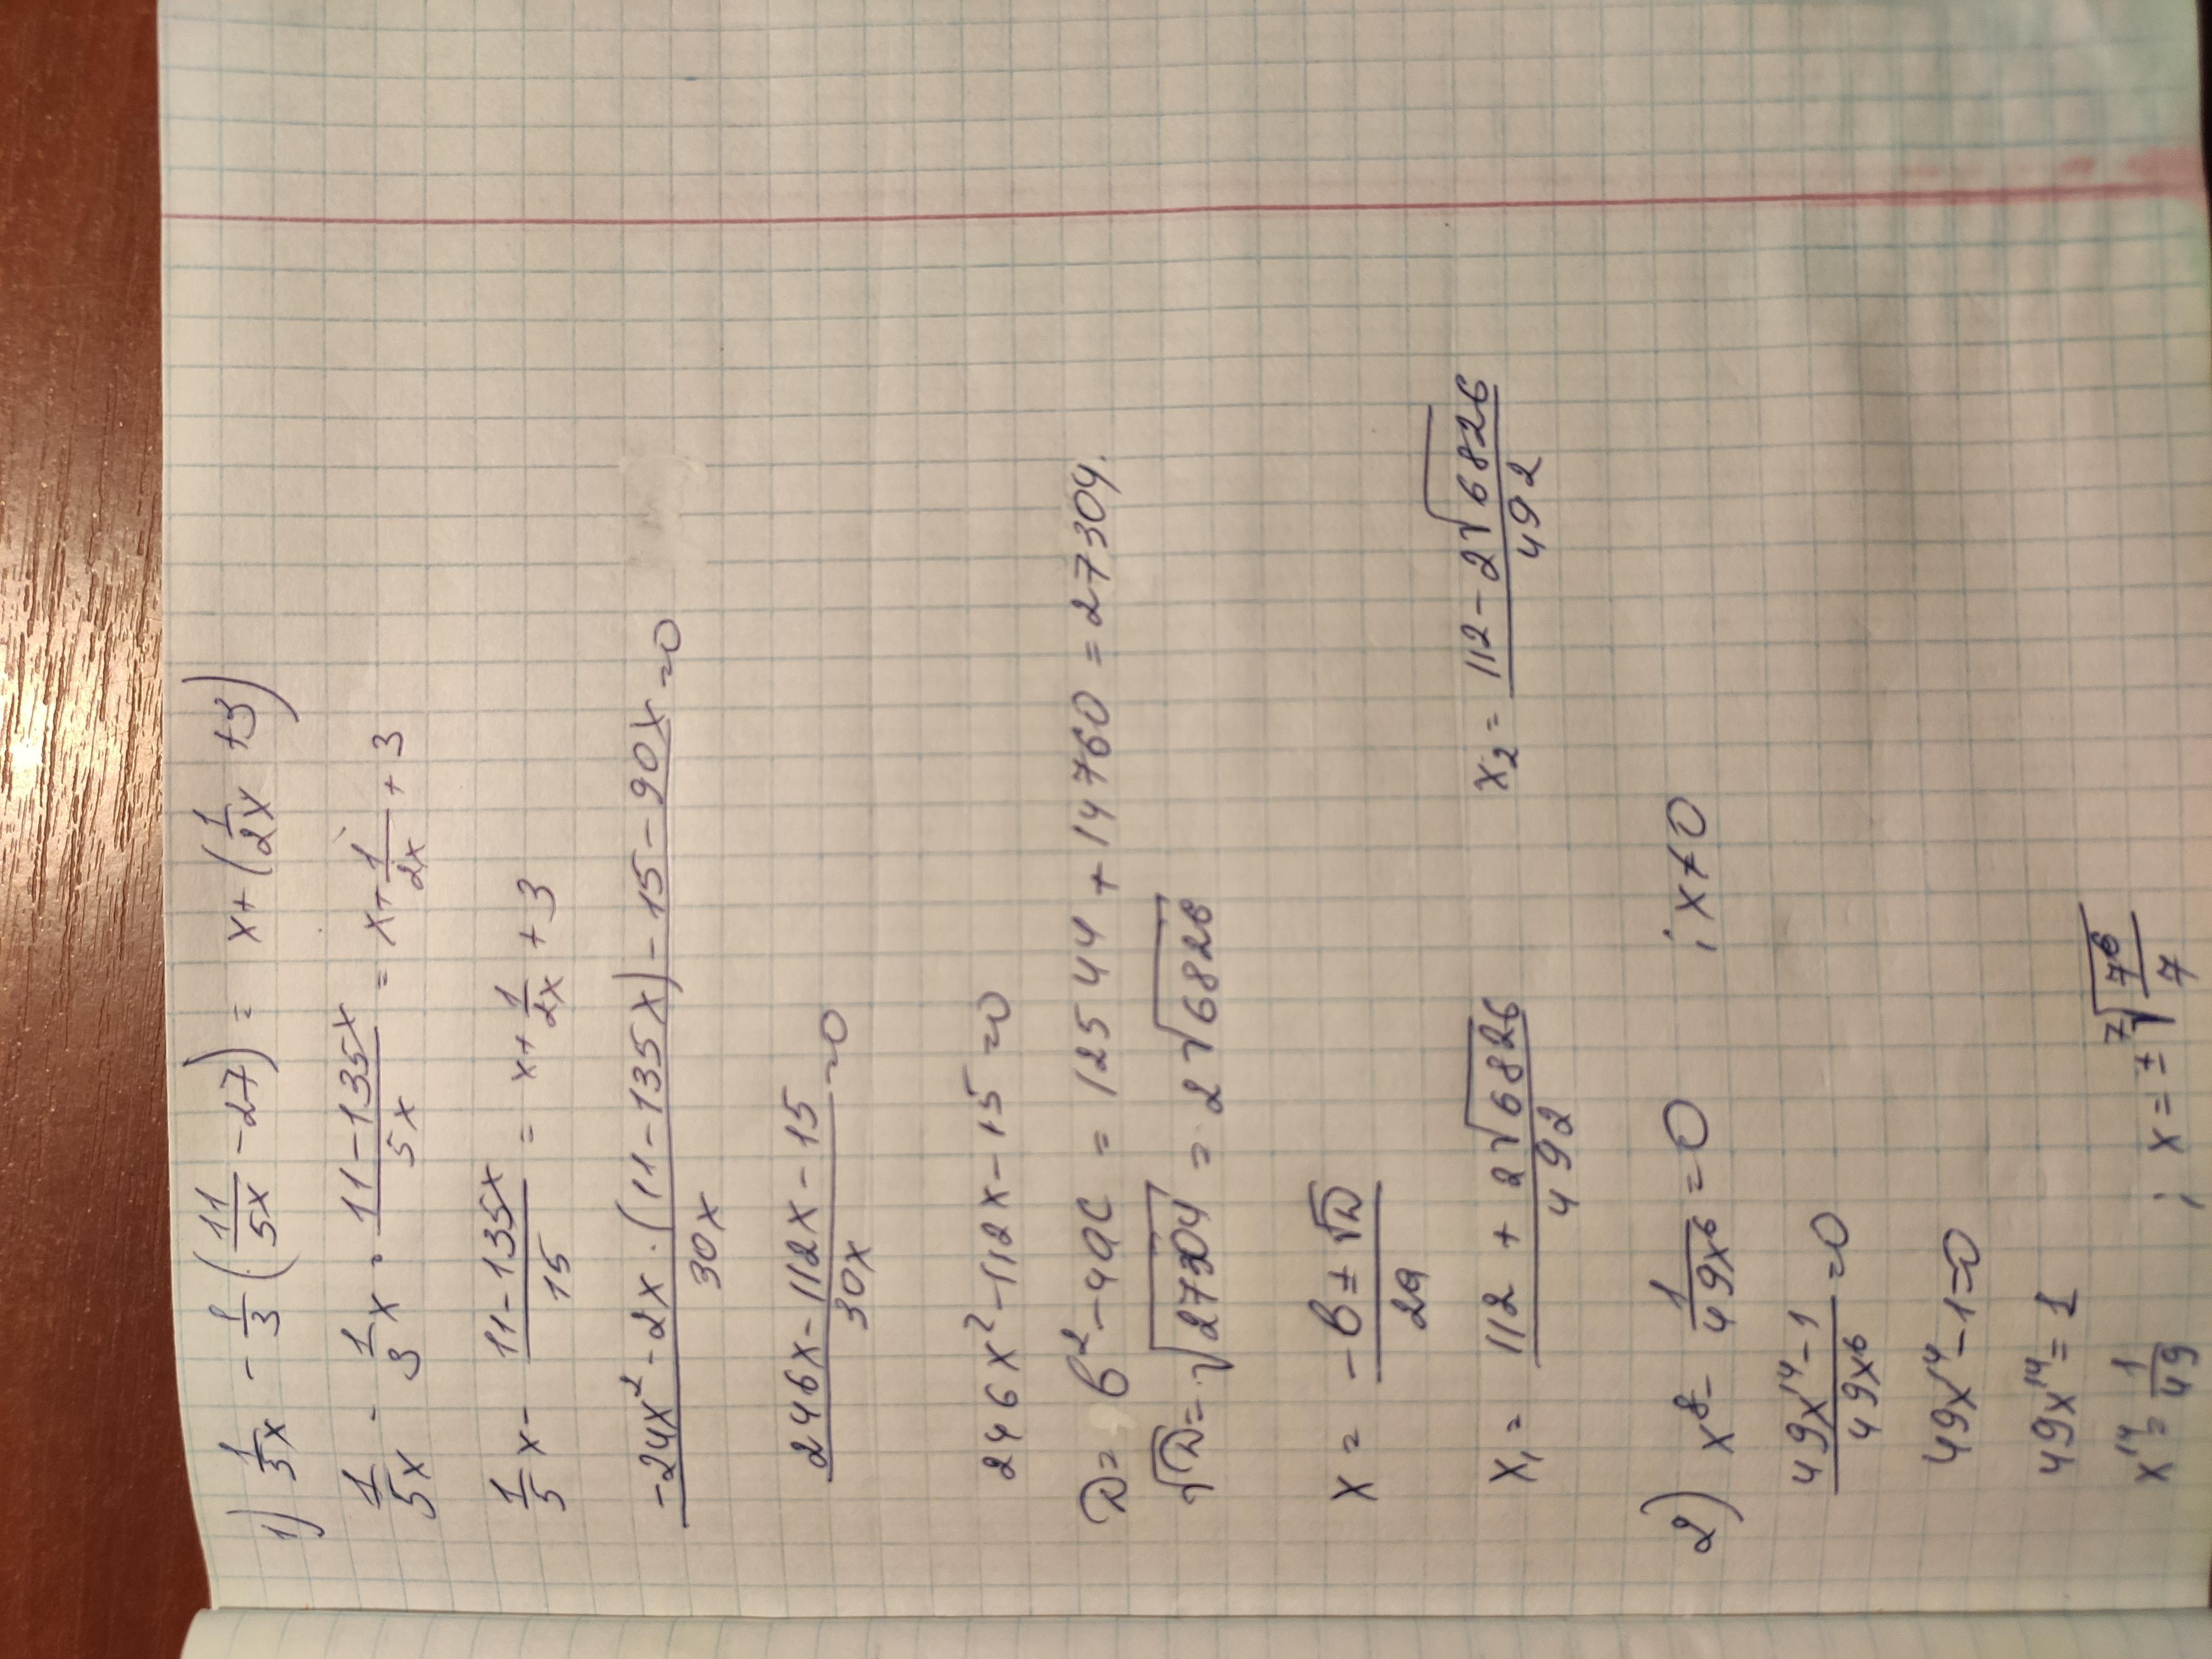 1) 1/5 x - 1/3 (11/5x - 27) = x + (1/2x + 3)
1/5x - 1/3 x · 11-135x/5x = x + 1/2x + 3
1/5 x - 11-135x/15 = x + 1/2x + 3
-24x² - 2x · (11-135x) - 15 - 90x/30x = 0
246x - 112x - 15/30x = 0
246x² - 112x - 15 = 0
D = b² - 4ac = 12544 + 14760 = 27304.
√D = √27304 = 2√6826
x = -b ± √D/2a
x₁ = 112 + 2√6826/492 x₂ = 112 - 2√6826/492
2) x⁸ - 1/49x⁶ = 0 ; x ≠ 0
49x¹⁴ - 1/49x⁶ = 0
49x¹⁴ - 1 = 0
49x¹⁴ = 1
x¹⁴ = 1/49 ; x = ± ⁷√7⁶/7